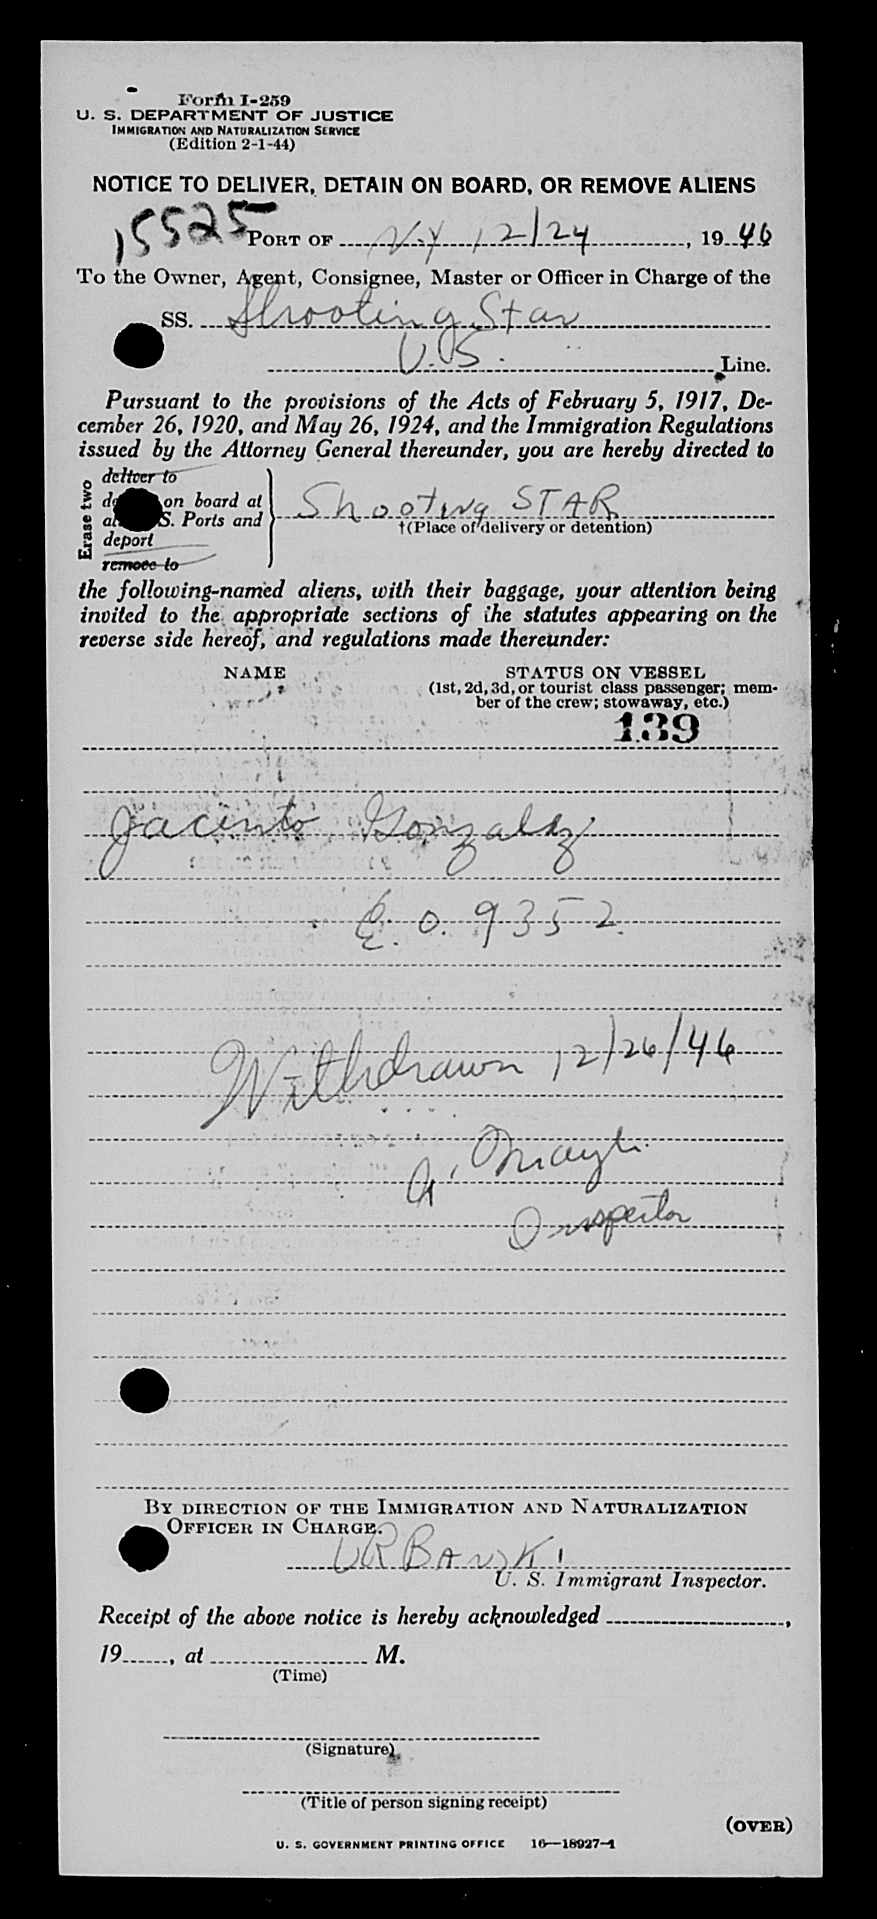 Form I-259
U. S. DEPARTMENT OF JUSTICE
IMMIGRATION AND NATURALIZATION SERVICE
(Edition 2-1-44)
NOTICE TO DELIVER, DETAIN ON BOARD, OR REMOVE ALIENS
15525
PORT OF N.Y 12/24, 1946
To the Owner, Agent, Consignee, Master or Officer in Charge of the
SS. Shooting Star
U.S. Line.
Pursuant to the provisions of the Acts of February 5, 1917, De-
cember 26, 1920, and May 26, 1924, and the Immigration Regulations
issued by the Attorney General thereunder, you are hereby directed to
Erase two
deliver to
on board at
S. Ports and
deport
remove to
Shooting STAR
†(Place of delivery or detention)
the following-named aliens, with their baggage, your attention being
invited to the appropriate sections of the statutes appearing on the
reverse side hereof, and regulations made thereunder:
NAME
STATUS ON VESSEL
(1st, 2d, 3d, or tourist class passenger; mem-
ber of the crew; stowaway, etc.)
139
Jacinto Gonzalez
E.O. 9352
Withdrawn 12/26/46
Inspector
BY DIRECTION OF THE IMMIGRATION AND NATURALIZATION
OFFICER IN CHARGE.
URBANSKI
U. S. Immigrant Inspector.
Receipt of the above notice is hereby acknowledged ,
19 , at M.
(Time)
(Signature)
(Title of person signing receipt)
(OVER)
U. S. GOVERNMENT PRINTING OFFICE 16—18927-1